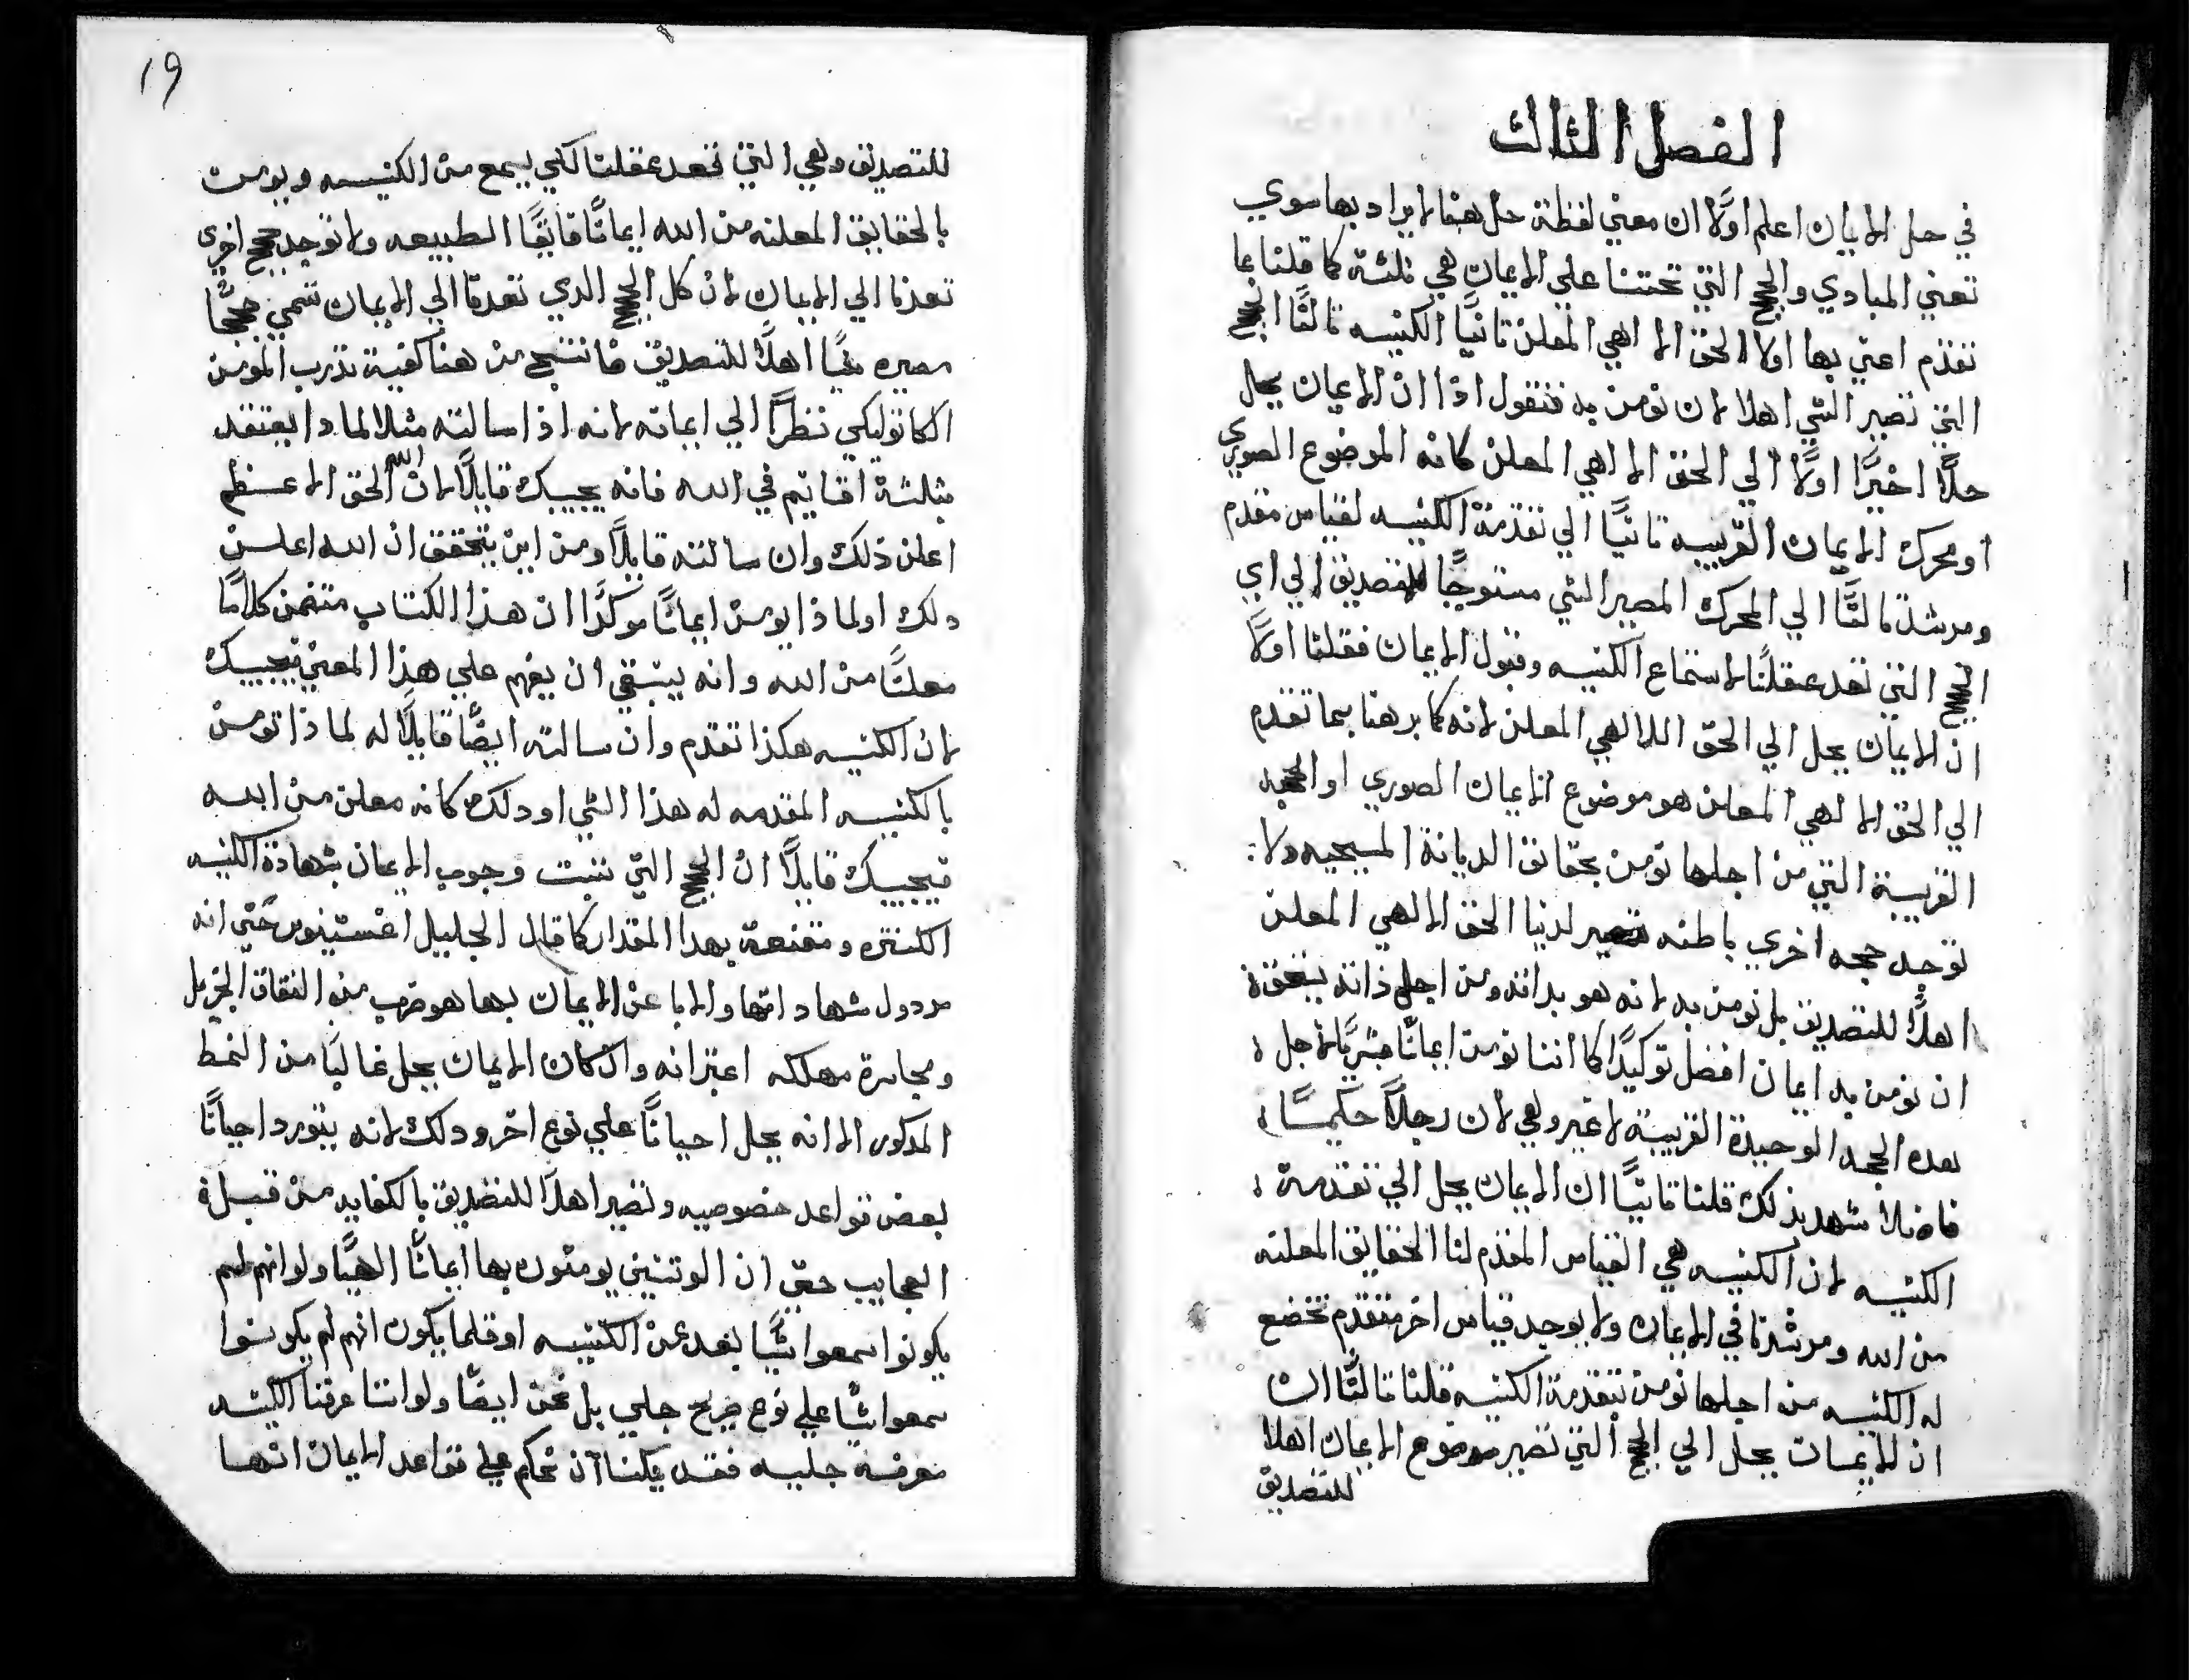 الفصل الثالث
في حل الايمان اعلم اوَّلًا ان معني لفظة حل هنا لا يراد بها سوي
تعني المبادي والحجج التي تحتنا علي الايمان هي ثلثة كما قلنا بما
تقدم اعني بها اولا الحق الالهي المعلن ثانيًا الكنيسه ثالثًا الحجج
التي تصير الشي اهلا لان نومن به فنقول اذًا ان الايمان يحل
حلًّا اخيرًا اولًا الي الحق الالهي المعلن كانه الموضوع الصوري
او محرك الايمان القريبه ثانيًا الي تقدمة الكنيسه لقياس مقدم
ومرشد ثالثًا الي المحرك المصير الشي مستوجبًا للتصديق الي اي
الحجج التي تعد عقلنا لاستماع الكنيسه وقبول الايمان فقلنا اولًا
ان الايمان يحل الي الحق الالهي المعلن لانه كما برهنا بما تقدم
الي الحق الالهي المعلن هو موضوع الايمان الصوري او الحجه
القريبة التي من اجلها نومن بحقائق الديانة المسيحيه ولا
توجد حجه اخري باطنه تصير لدينا الحق الالهي المعلن
اهلًا للتصديق بل نومن به لانه هو بذاته ومن اجل ذاته يستحق
ان نومن به ايمان افضل توكيدًا كما اننا نومن ايمانًا بشريًا لاجل
هده الحجه الوحيدة القريبة لا غير وهي لان رجلًا حكيمًا
فاضلا شهد بذلك قلنا ثانيًا ان الايمان يحل الي تقدمة
الكنيسه لان الكنيسه هي القياس المقدم لنا الحقايق المعلنه
من الله ومرشدنا في الايمان ولا يوجد قياس اخر متقدم تخضع
له الكنيسه من اجلها نومن بتقدمة الكنيسه قلنا ثالثًا ان
ان الايمان يحل الي الحجج التي تصير موضوع الايمان اهلا
للتصديق
19
للتصديق وهي التي تعد عقلنا لكي يسمع من الكنيسه ويومن
بالحقايق المعلنه من الله ايمانًا فايقًا الطبيعه ولا توجد حجج اخري
تعدنا الي الايمان لان كل الحجج الدي تعدنا الي الايمان تسمي حججًا
مصيره شيًا اهلًا للتصديق فانتتج من هنا كفية تدرب المومن
الكاتوليكي نظرًا الي ايمانه لانه اذا سالته مثلا لمادا يعتقد
بثلثة اقانيم في الله فانه يجيبك قايلًا لان الله الحق الاعظم
اعلن ذلك وان سالته قايلًا ومن اين يتحقق ان الله اعلن
دلك او لماذا يومن ايمانًا موكدًا ان هذا الكتاب متضمن كلامًا
معلنًا من الله وانه ينبغي ان يفهم علي هذا المعني فيجيبك
لان الكنيسه هكذا تقدم وان سالته ايضًا قايلًا له لماذا تومن
بالكنيسه المقدمه له هذا الشي او دلك كانه معلن من الله
فيجيبك قايلًا ان الحجج التي تثبت وجوب الايمان بشهادة الكنيسه
الكثيره ومقنعة بهدا المقدار كما قال الجليل اغستينوس حتي انه
مردول شهاداتها والابا عن الايمان بها هو ضرب من النفاق الجزيل
ومجاسرة مهلكه اعتزانه وان كان الايمان يحل غالبًا من النمط
المدكور الا انه يحل احيانًا علي نوع اخر ودلك لانه يتورد احيانًا
بعض قواعد خصوصيه وتصير اهلًا للتصديق بالكفايه من قبل
العجايب حتي ان الوتنيين يومنون بها ايمانًا الهيًا ولو انهم لم
يكونوا سمعوا شيًا بعد عن الكنيسه او قلما يكون انهم لم يكونوا
سمعوا شيًا علي نوع صريح جلي بل نحن ايضًا ولو اننا عرفنا الكنيسه
معرفة جليه فقد يمكننا ان نحكم علي قواعد الايمان انها